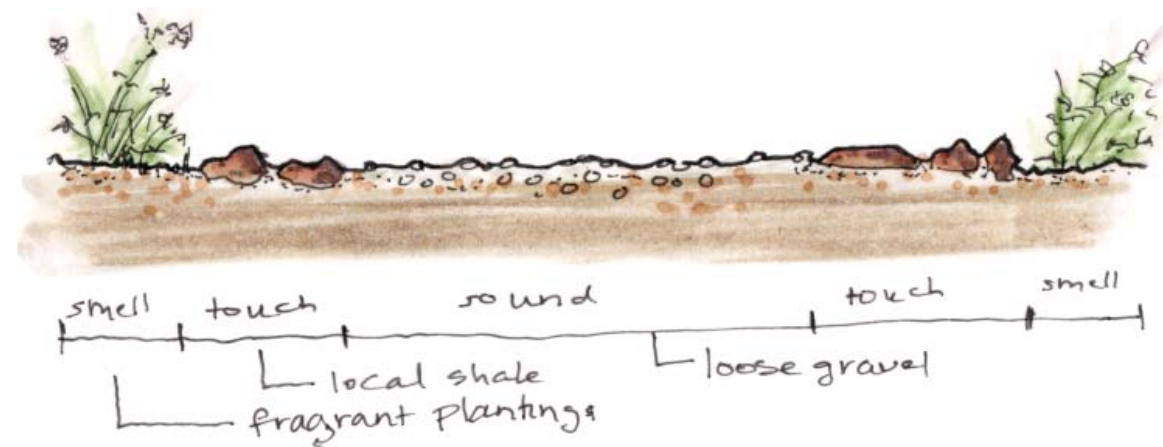 smell touch sound touch smell
local shale
loose gravel
fragrant plantings